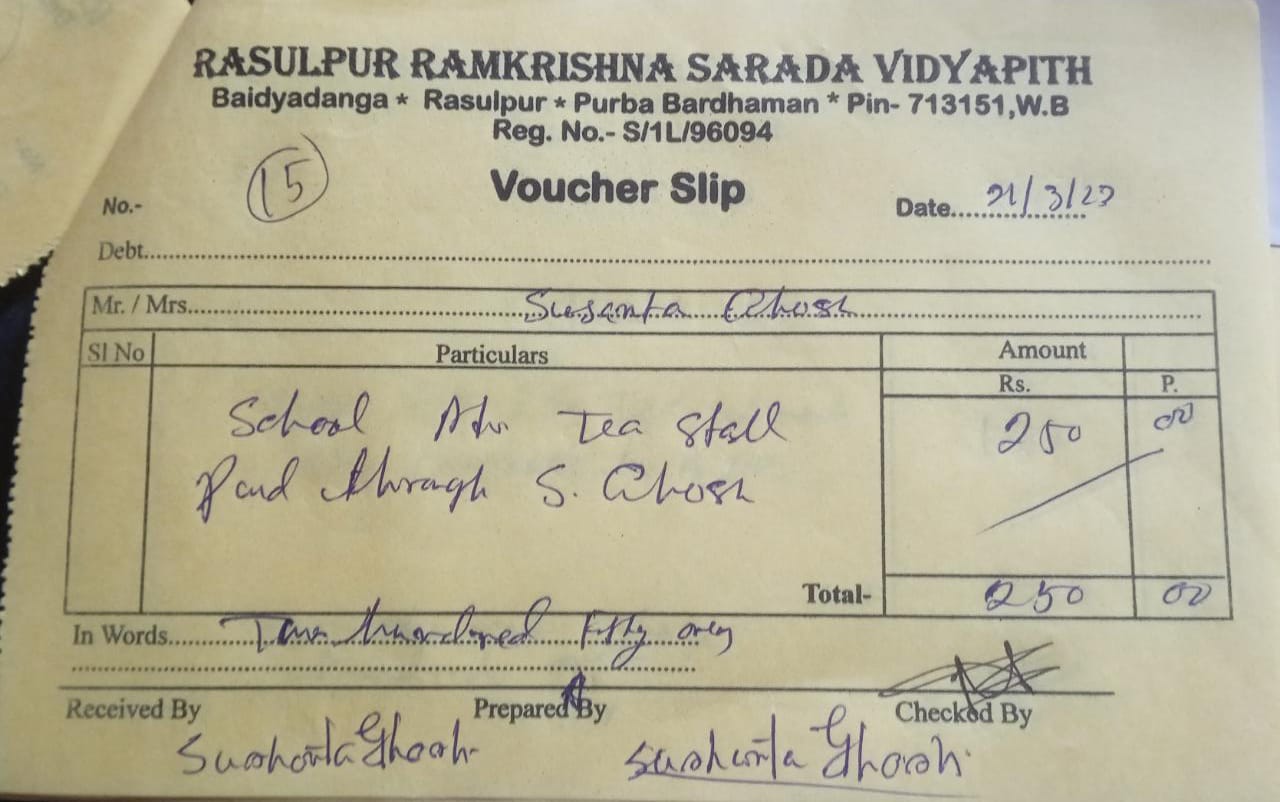 RASULPUR RAMKRISHNA SARADA VIDYAPITH
Baidyadanga * Rasulpur * Purba Bardhaman * Pin- 713151,W.B
Reg. No.- S/1L/96094
No.- 15 Voucher Slip Date.....21/3/23
Debt.....
Mr. / Mrs.....Susanta Ghosh
Sl No Particulars Amount
Rs. P.
School Tea Stall 250 00
Paid through S. Ghosh
Total- 250 00
In Words.....Two hundred Fifty only
Received By Prepared By Checked By
Sushanta Ghosh Sushanta Ghosh